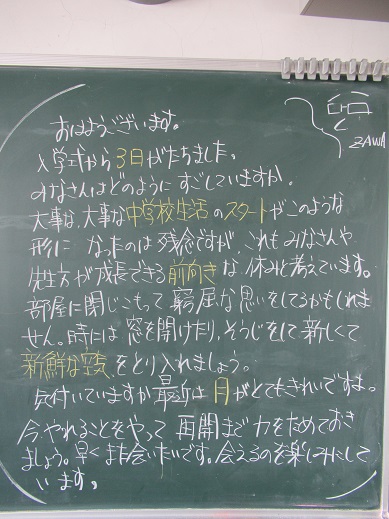 おはようございます。
ZAWA
入学式から3日がたちました。
みなさんはどのようにすごしていますか。
大事な、大事な中学校生活のスタートがこのような
形になったのは残念ですが、これもみなさんや
先生方が成長できる前向きな休みと考えています。
部屋に閉じこもって窮屈な思いをしてるかもしれま
せん。時には窓を開けたり、そうじをして新しくて
新鮮な空気をとり入れましょう。
気付いていますか最近は月がとてもきれいですよ。
今、やれることをやって再開まで力をためておき
ましょう。早くまた会いたいです。会えるのを楽しみにして
います。